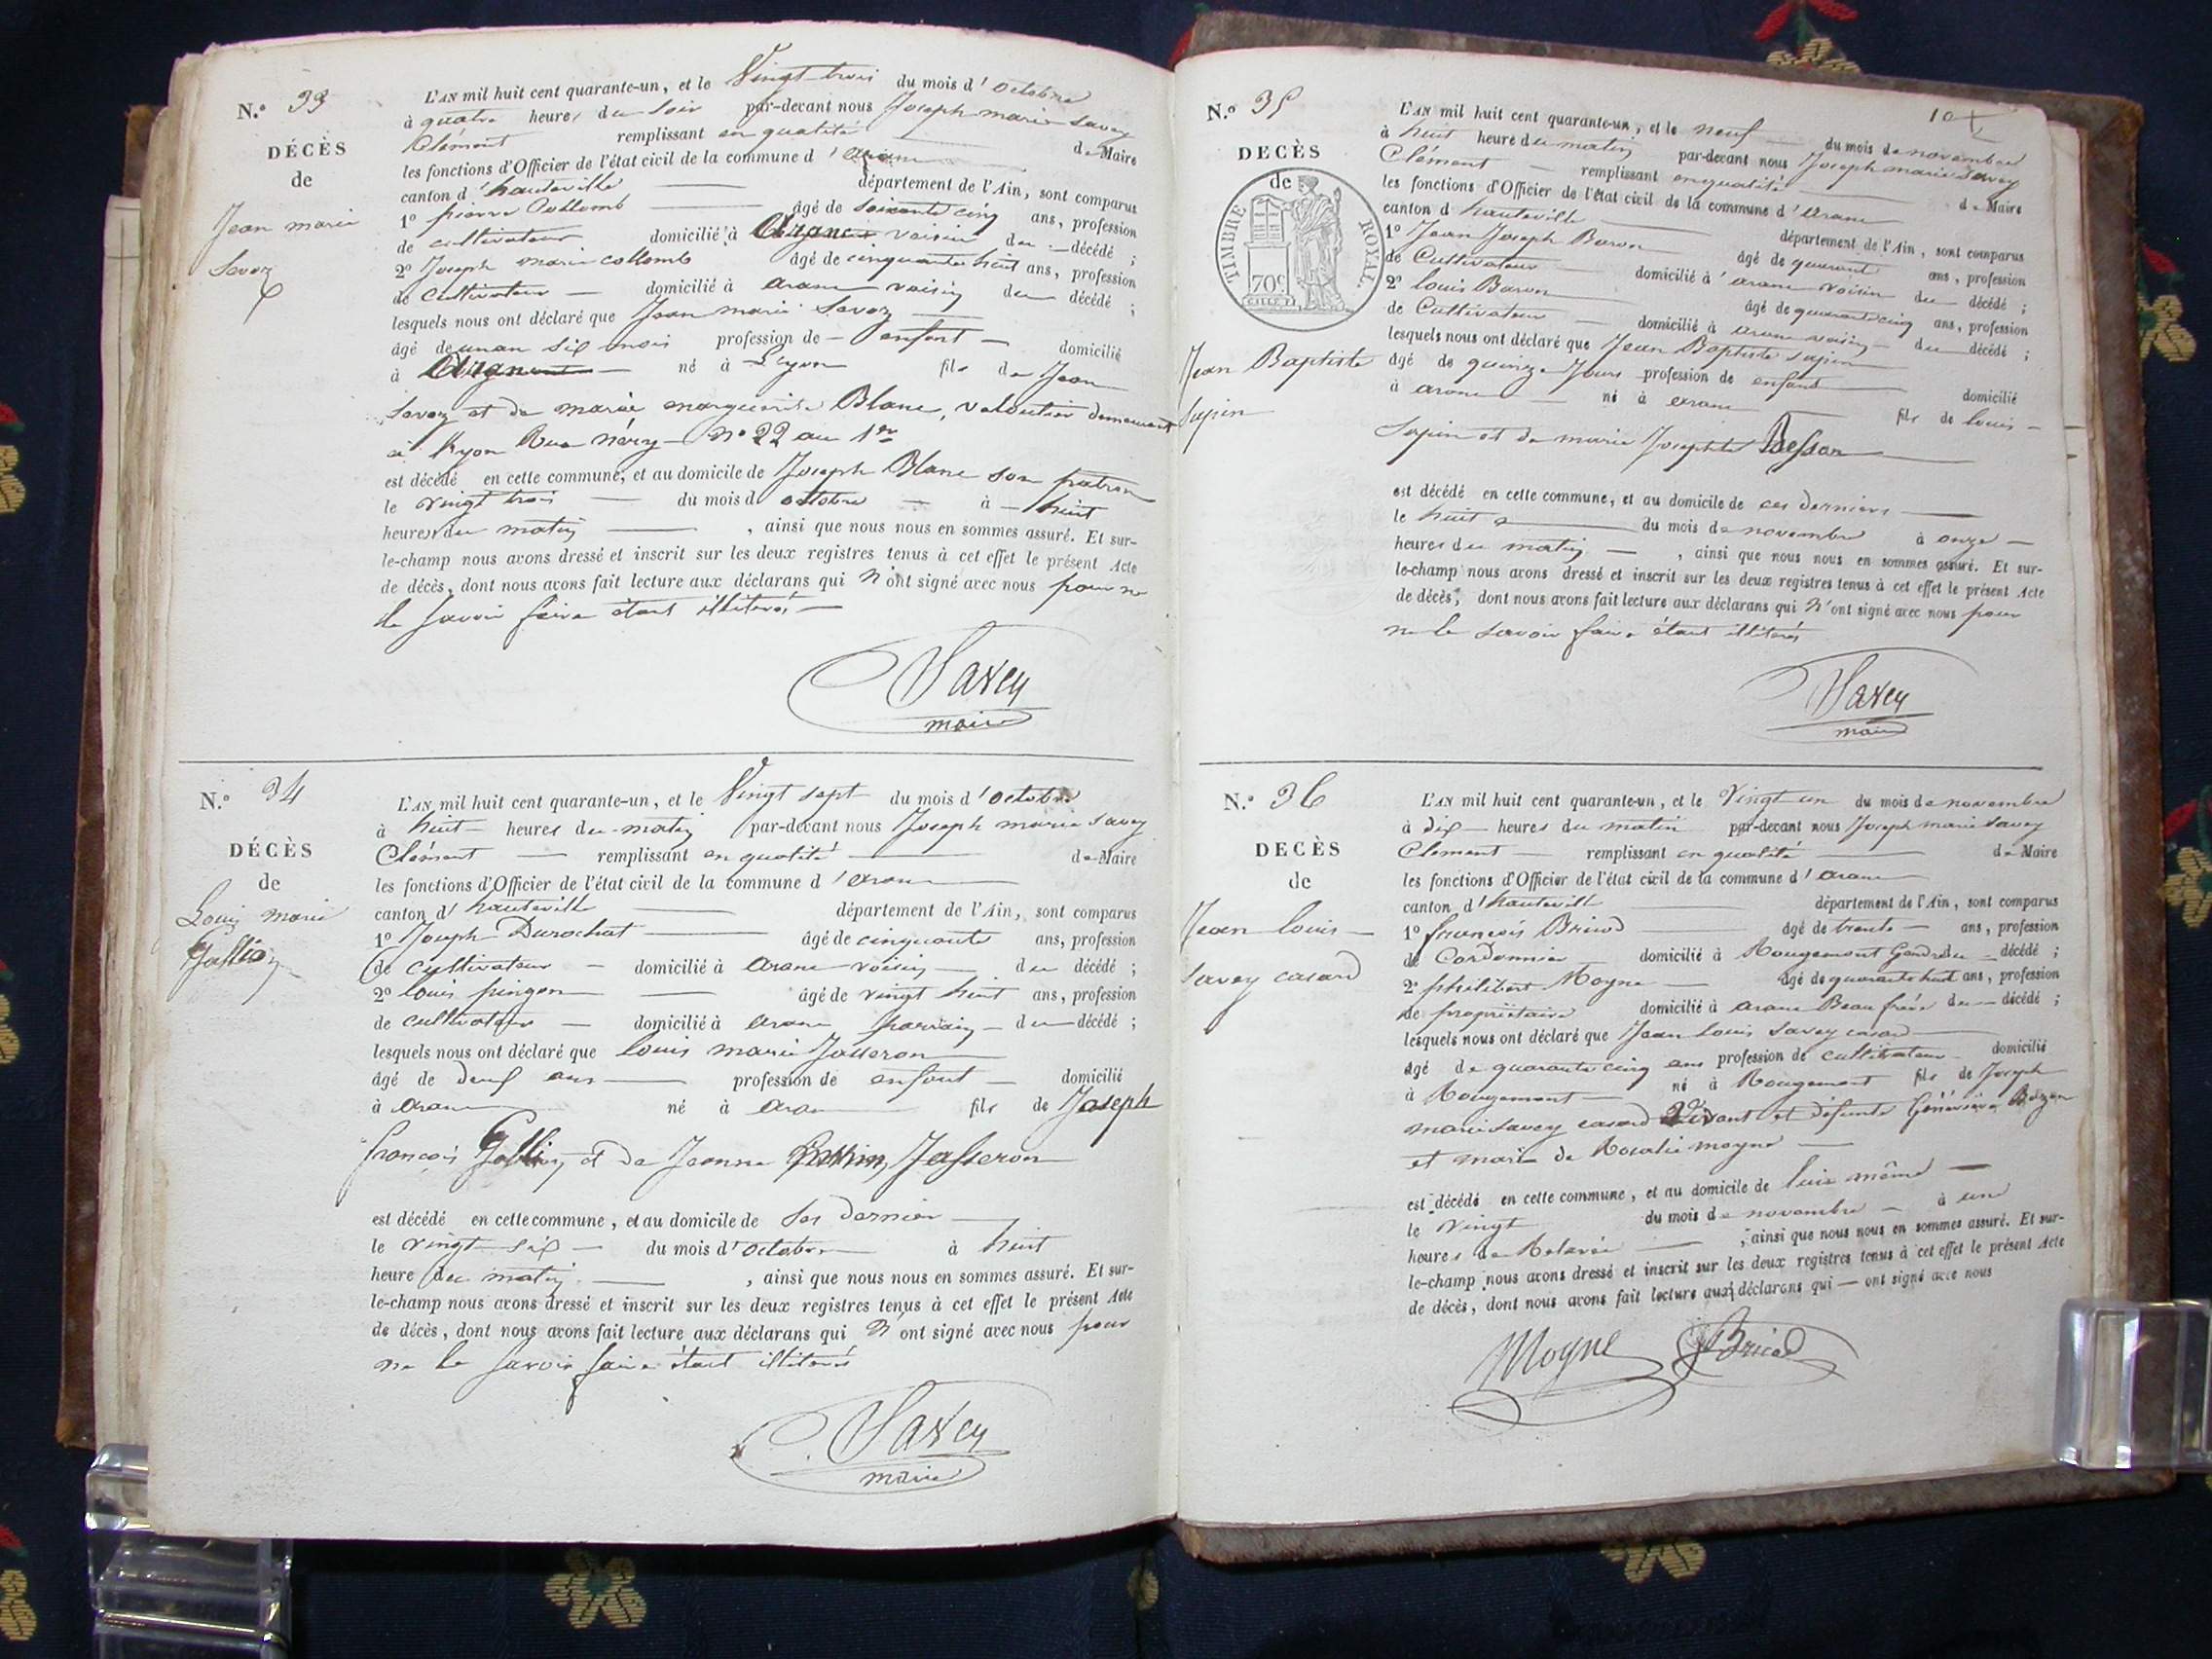 N.o 33
DÉCÈS
de
Jean marie
Savoy
L'AN mil huit cent quarante-un, et le Vingt trois du mois d'octobre
à quatre heures du soir par-devant nous Joseph marie Savey
Clément remplissant en qualité de Maire
les fonctions d'Officier de l'état civil de la commune d'aranc
canton d'hauteville département de l'Ain, sont comparus
1o pierre Collomb âgé de soixante cinq ans, profession
de cultivateur domicilié à voisin du décédé ;
2o Joseph marie collomb âgé de cinquante huit ans, profession
de cultivateur domicilié à aranc voisin du décédé ;
lesquels nous ont déclaré que Jean marie Savoy
âgé de un an six mois profession de enfant domicilié
à né à Lyon fils de Jean
Savoy et de marie marguerite Blanc, demeurant
à Lyon Rue néry no 22 au 1er
est décédé en cette commune, et au domicile de Joseph Blanc son
le vingt trois du mois d octobre à huit
heures du matin , ainsi que nous nous en sommes assuré. Et sur-
le-champ nous avons dressé et inscrit sur les deux registres tenus à cet effet le présent Acte
de décès, dont nous avons fait lecture aux déclarans qui n'ont signé avec nous pour ne
le savoir faire étant illiterés
Savey
maire
N.o 34
DÉCÈS
de
Louis marie
L'AN mil huit cent quarante-un, et le Vingt sept du mois d'octobre
à huit heures du matin par-devant nous Joseph marie Savey
Clément remplissant en qualité de Maire
les fonctions d'Officier de l'état civil de la commune d'aranc
canton d'hauteville département de l'Ain, sont comparus
1o Joseph Durochat âgé de cinquante ans, profession
de cultivateur domicilié à aranc voisin du décédé ;
2o louis pingon âgé de vingt huit ans, profession
de cultivateur domicilié à aranc parrain du décédé ;
lesquels nous ont déclaré que louis marie Jasseron
âgé de deux ans profession de enfant domicilié
à aranc né à aranc fils de Joseph
françois et de Jeanne Jasseron
est décédé en cette commune, et au domicile de ses dernier
le vingt six du mois d'octobre à huit
heure du matin , ainsi que nous nous en sommes assuré. Et sur-
le-champ nous avons dressé et inscrit sur les deux registres tenus à cet effet le présent Acte
de décès, dont nous avons fait lecture aux déclarans qui n'ont signé avec nous pour
ne le savoir faire étant illiterés
Savey
maire
N.o 35
DECÈS
de
TIMBRE ROYAL.
70c
Jean Baptiste
Sapin
L'AN mil huit cent quarante-un, et le neuf du mois de novembre
à huit heure du matin par-devant nous Joseph marie Savey
Clément remplissant en qualité de Maire
les fonctions d'Officier de l'état civil de la commune d'aranc
canton d hauteville département de l'Ain, sont comparus
1o Jean Joseph Baron âgé de quarante ans, profession
de Cultivateur domicilié à aranc voisin du décédé ;
2o louis Baron âgé de quarante cinq ans, profession
de Cultivateur domicilié à aranc voisin du décédé ;
lesquels nous ont déclaré que Jean Baptiste sapin
âgé de quinze Jours profession de enfant domicilié
à aranc né à aranc fils de louis
Sapin et de marie Josephte Besson
est décédé en cette commune, et au domicile de ces derniers
le huit du mois de novembre à onze
heures du matin , ainsi que nous nous en sommes assuré. Et sur-
le-champ nous avons dressé et inscrit sur les deux registres tenus à cet effet le présent Acte
de décès, dont nous avons fait lecture aux déclarans qui n'ont signé avec nous pour
ne le savoir faire étant illiterés
Savey
maire
N.o 36
DECÈS
de
Jean louis
savey casard
L'AN mil huit cent quarante-un, et le Vingt un du mois de novembre
à dix heures du matin par-devant nous Joseph marie Savey
Clément remplissant en qualité de Maire
les fonctions d'Officier de l'état civil de la commune d'aranc
canton d'hauteville département de l'Ain, sont comparus
1o françois Bricod âgé de trente ans, profession
de Cordonnier domicilié à Rougemont Gendre du décédé ;
2o philibert Moyne âgé de quarante huit ans, profession
de propriétaire domicilié à aranc Beau frère du décédé ;
lesquels nous ont déclaré que Jean louis savey casard
âgé de quarante cinq ans profession de cultivateur domicilié
à Rougemont né à Rougemont fils de Joseph
marie savey casard vivant et défunte Géneviève Bozon
et mari de Rosalie moyne
est décédé en cette commune, et au domicile de lui même
le vingt du mois de novembre à une
heures de Relevée , ainsi que nous nous en sommes assuré. Et sur-
le-champ nous avons dressé et inscrit sur les deux registres tenus à cet effet le présent Acte
de décès, dont nous avons fait lecture aux déclarans qui ont signé avec nous
Moyne Bricod